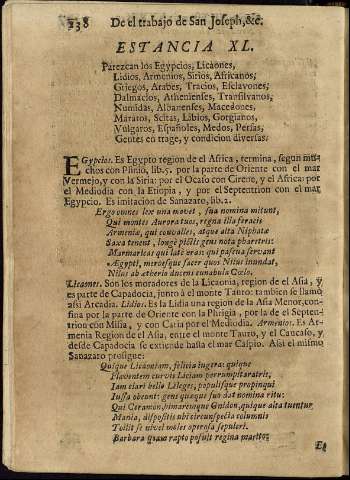 238 De el trabajo de San Joseph,&c.
ESTANCIA XL.
Parezcan los Egypcios, Licaones,
Lidios, Armenios, Sirios, Africanos;
Griegos, Arabes, Tracios, Esclavones;
Dalmacios, Athenienses, Transilvanos,
Numidas, Albanenses, Macedones,
Maratos, Scitas, Libios, Gorgianos,
Vulgaros, Españoles, Medos, Persas,
Gentes en trage, y condicion diversas.
Egypcios. Es Egypto region de el Africa, termina, segun mu
chos con Plinio, lib.5. por la parte de Oriente con el mar
Vermejo, y con la Siria: por el Ocaso con Cirene, y el Africa: por
el Mediodia con la Etiopia, y por el Septentrion con el mar
Egypcio. Es imitacion de Sanazaro, lib.2.
Ergo omnes lex una movet, sua nomina mitunt,
Qui montes Aurora tuos, regna illa feracis
Armeniæ, qui convalles, atque alta Niphatæ
Saxa tenent, longè pictis gens nota pharetris:
Marmaricas qui latè oras: qui pascua servant
Ægypti, mercesque sacer quos Nilus inundat,
Nilus ab ætherio ducens cunabula Cælo.
Licaones. Son los moradores de la Licaonia, region de el Asia, y
es parte de Capadocia, junto à el monte Tauro: tambien se llamò
assi Arcadia. Lidios. Es la Lidia una region de la Asia Menor, con-
fina por la parte de Oriente con la Phrigia, por la de el Septen-
trion con Misia, y con Caria por el Mediodia. Armenios. Es Ar-
menia Region de el Asia, entre el monte Tauro, y el Caucaso, y
desde Capadocia se extiende hasta el mar Caspio. Assi el mismo
Sanazaro prosigue:
Quique Licaoniam, felicia iugera: quique
Flaventem curvis Liciam perrumpit aratris,
Iam clari bello Leleges, populisque propinqui
Iussa obeunt: gens quæque suo dat nomina ritu:
Qui Ceramon, bimaremque Gnidon, quique alta tuentur
Mænia, dispositis ubi circunspecta columnis
Tollit se nivei moles operosa sepulcri.
Barbara quam rapto posuit regina marito: